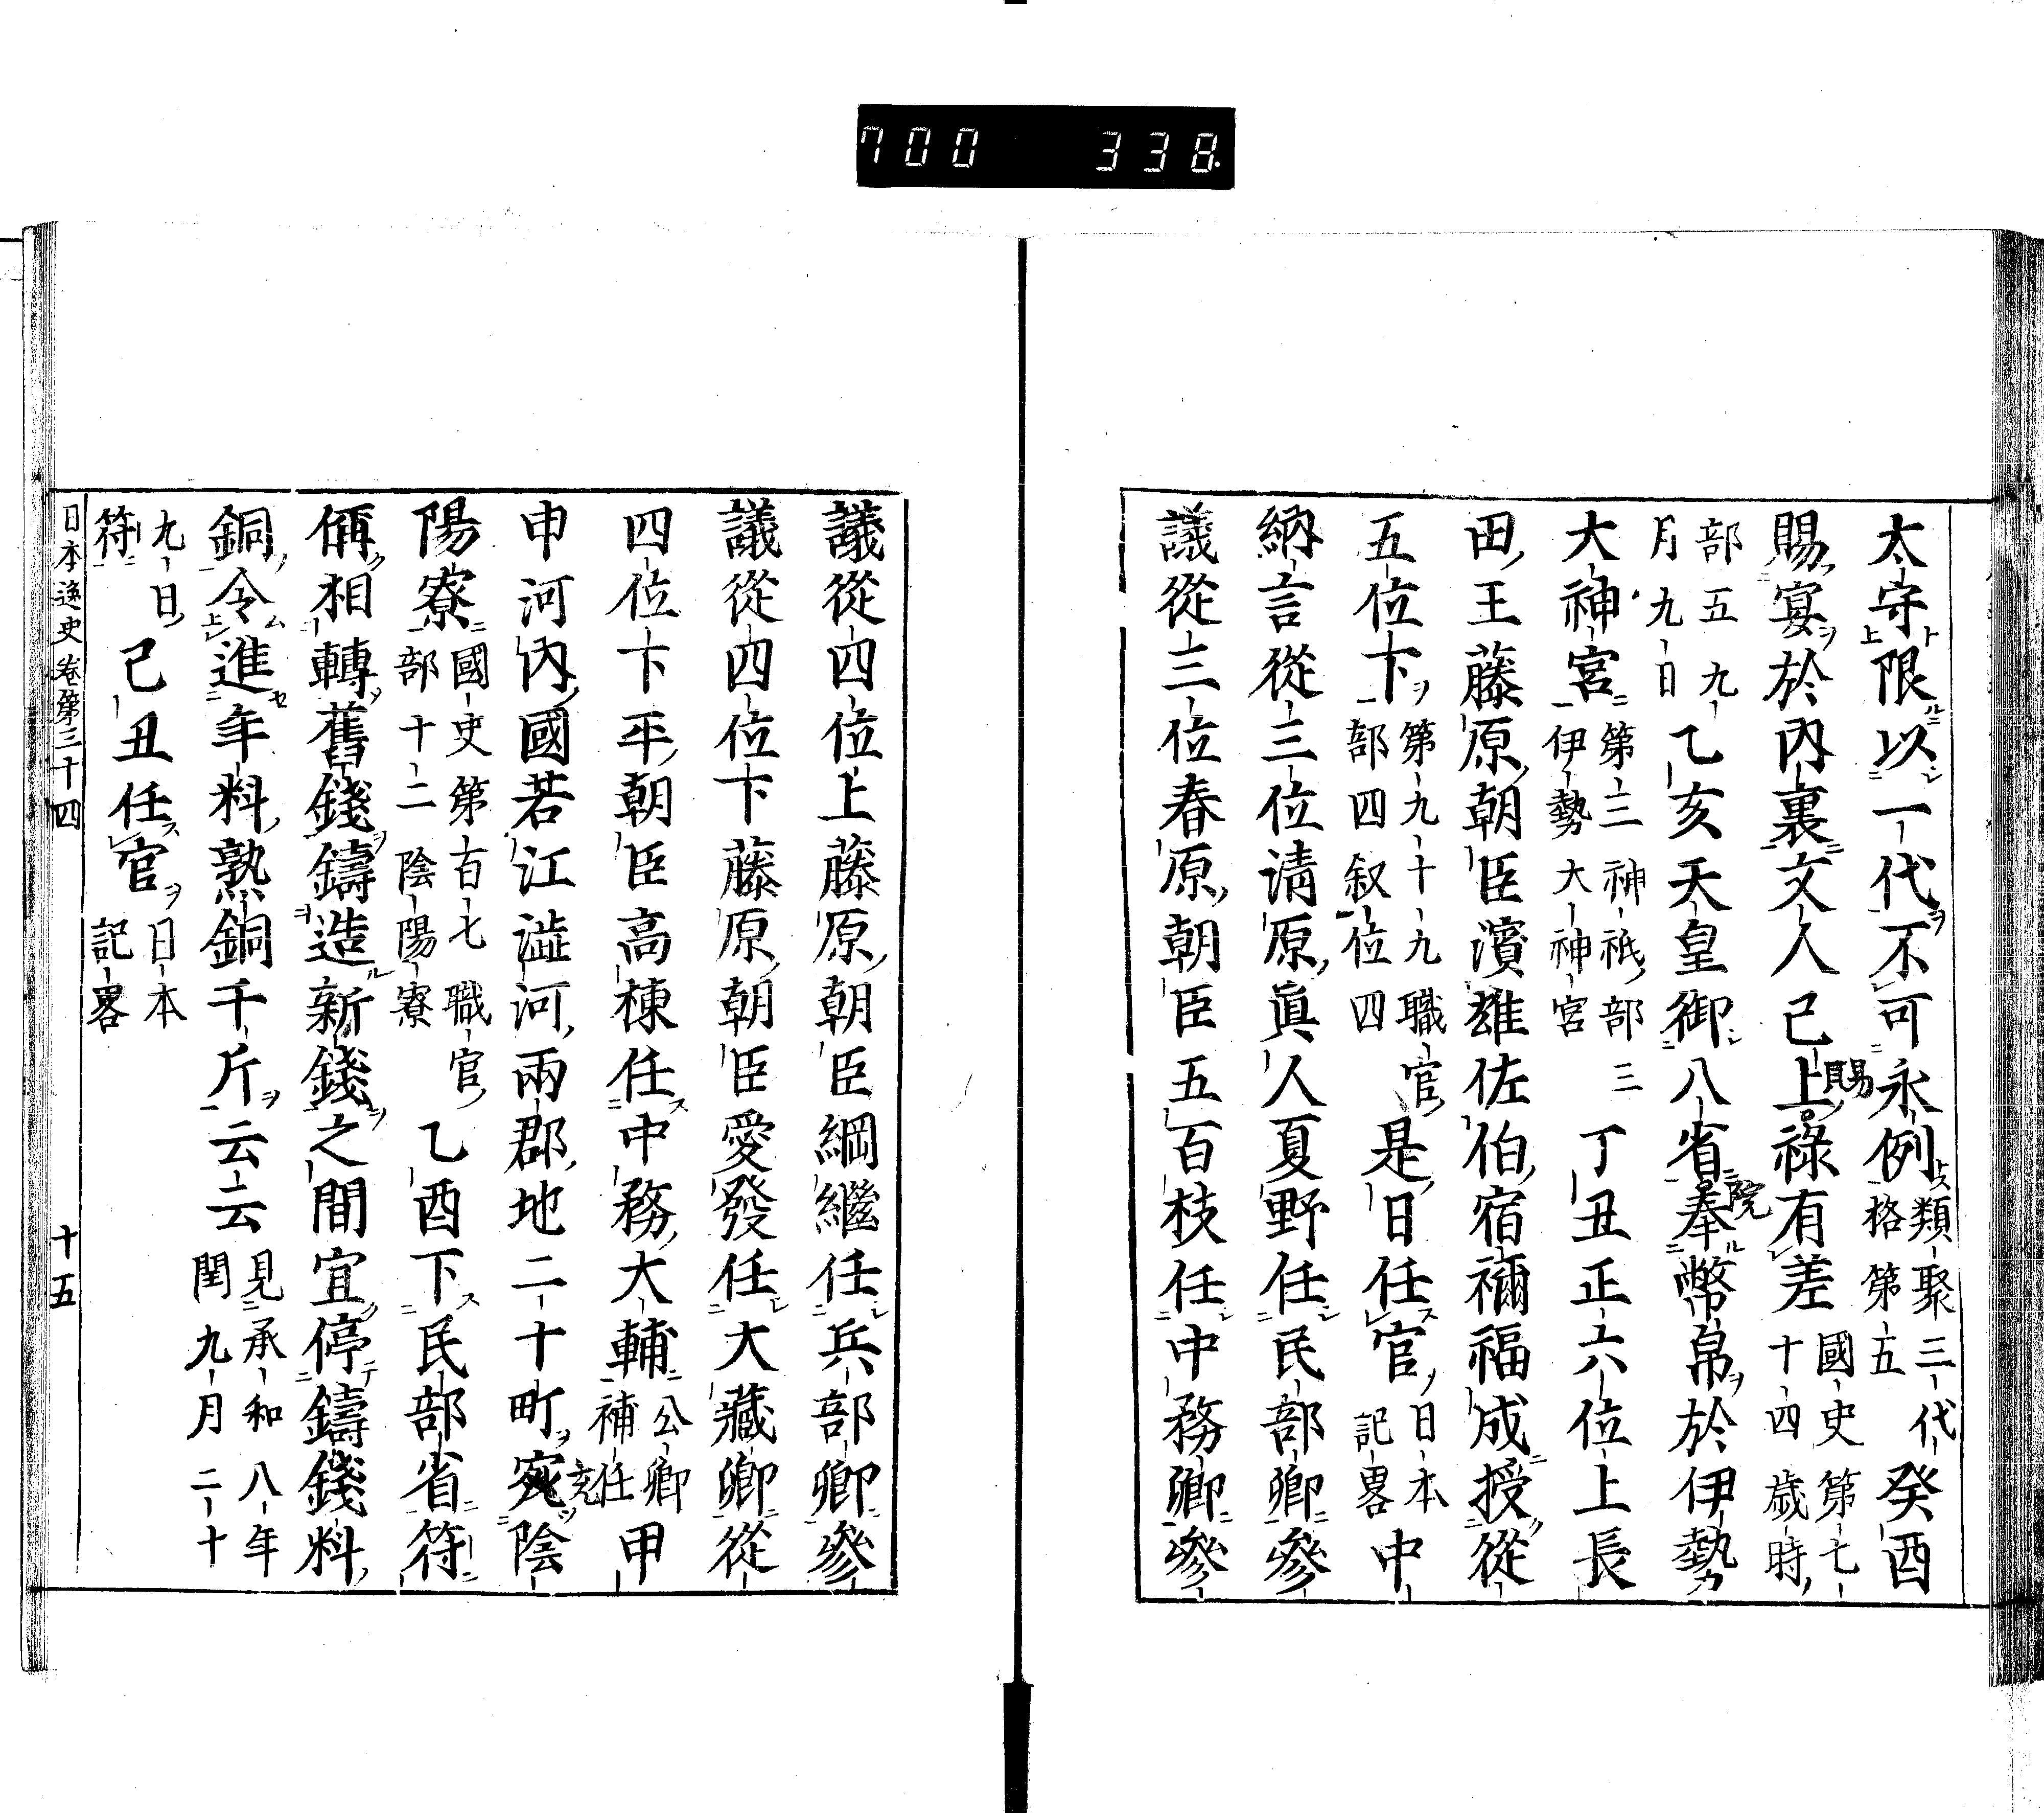 700 338
太守限以一代不可永例類聚三代格第五癸酉
賜宴於內裏文人已上賜祿有差國史第七十四歲時
部五九月九日乙亥天皇御八省院奉幣帛於伊勢
大神宮第三神祇部三伊勢大神宮丁丑正六位上長
田王藤原朝臣濱雄佐伯宿禰福成授從
五位下第九十九職官部四叙位四是日任官日本記畧中
納言從三位清原眞人夏野任民部卿參
議從三位春原朝臣五百枝任中務卿參
議從四位上藤原朝臣綱繼任兵部卿參
議從四位下藤原朝臣愛發任大藏卿從
四位下平朝臣高棟任中務大輔公卿補任甲
申河內國若江澁河兩郡地二十町宛充陰
陽寮國史第百七職官部十二陰陽寮乙酉下民部省符
偁相轉舊錢鑄造新錢之間宜停鑄錢料
銅令進年料熟銅千斤云云見承和八年閏九月二十
九日符己丑任官日本記畧
日本逸史卷第三十四 十五